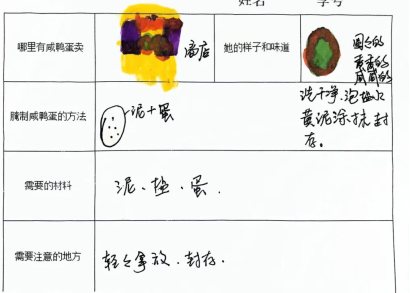 姓名 学号
哪里有咸鸭蛋卖
商店
她的样子和味道
圆的
香香的
咸咸的
腌制咸鸭蛋的方法
泥+蛋
洗干净.泡盐水
黄泥涂抹封
存。
需要的材料
泥、盐、蛋.
需要注意的地方
轻轻拿放.封存.